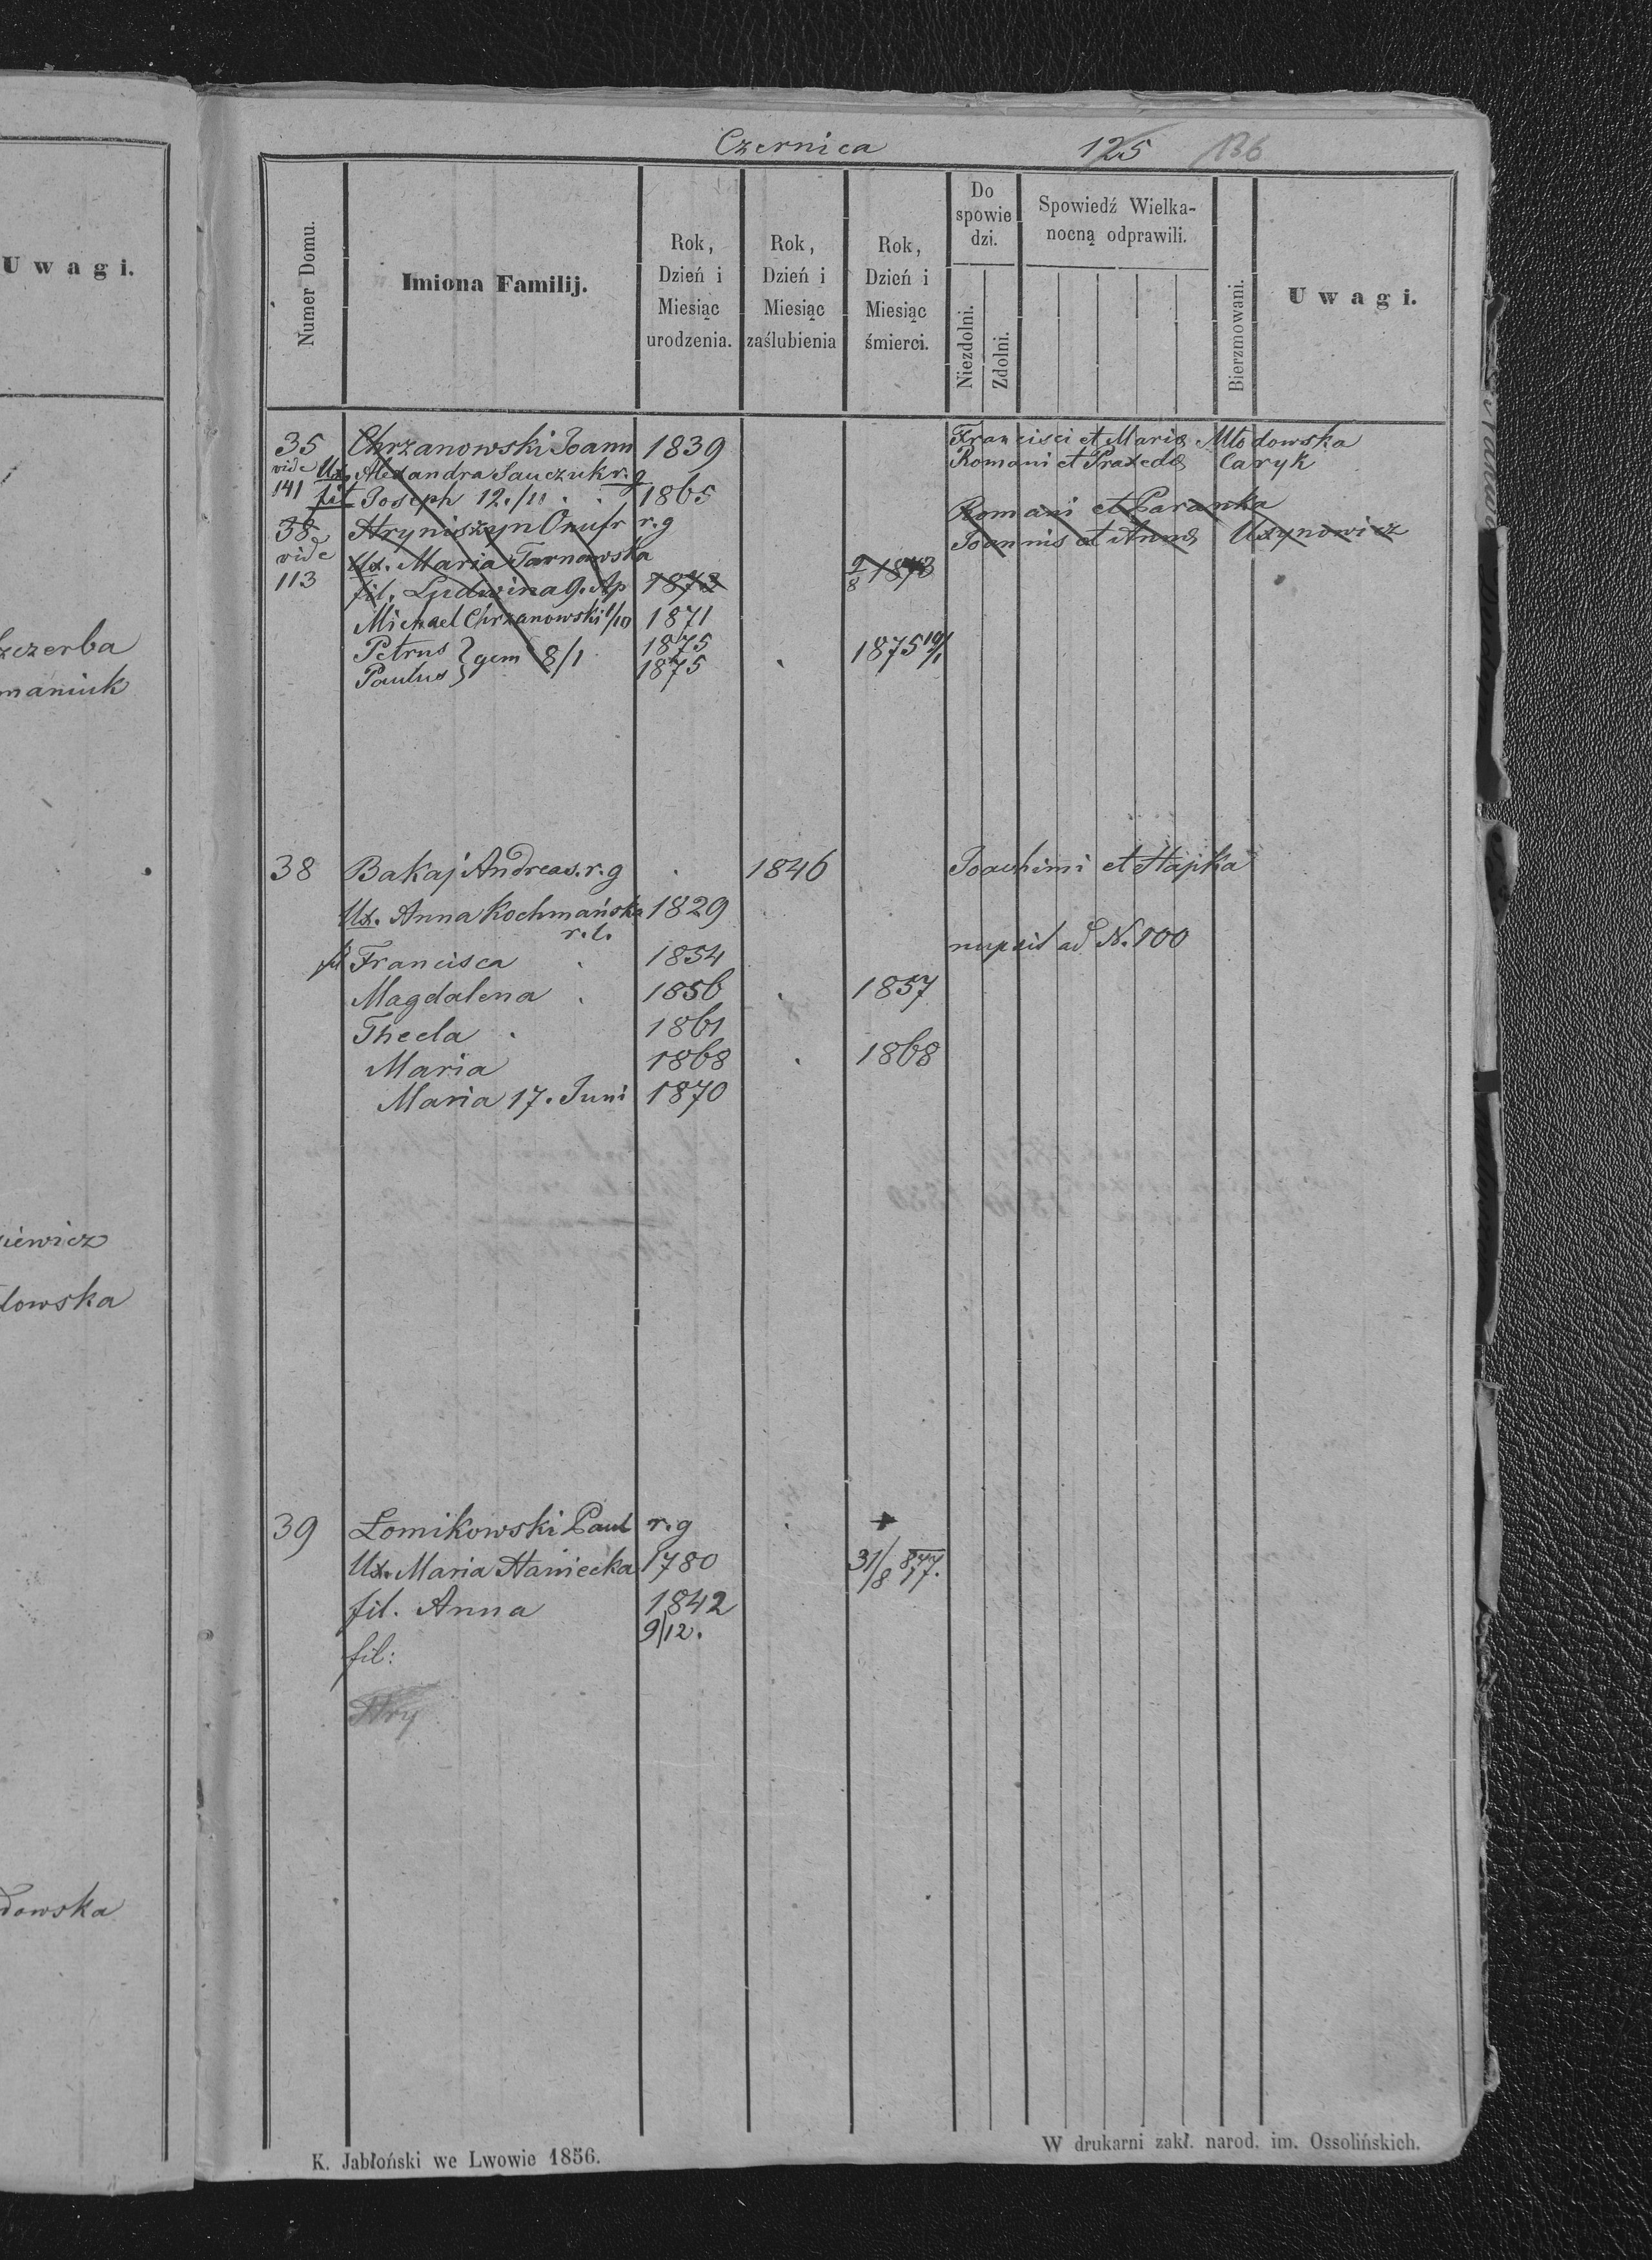 Czernica 125 136
Uwagi.
Numer Domu.
Imiona Familij.
Rok, Dzień i Miesiąc urodzenia.
Rok, Dzień i Miesiąc zaślubienia
Rok, Dzień i Miesiąc śmierci.
Do spowie dzi.
Niezdolni.
Zdolni.
Spowiedź Wielka-
nocną odprawili.
Bierzmowani.
Uwagi.
35 Chrzanowski Joann 1839 Francisci et Maria Młodowska
wide Ux. Alexandra Sauczuk r. g Romani et Praxeda Caryk
141 fil Joseph 12./11 1865
38 Hryniszyn Onufr r.g Romani et Paranka
wide Ux. Maria Tarnawska Joannis et Anna Uzynowicz
113 fil. Ludwina 9. Ap 1873 9/8 1873
Michael Chrzanowski 1/10 1871
Petrus } gem 8/1 1875 1875 10/1
Paulus 1875
zczerba
maniuk
38 Bakaj Andreas. r. g 1846 Joachimi et Hapka
Ux. Anna Kochmańska 1829
r. l.
fil Francisca 1854 nupsit ad N. 100
Magdalena 1856 1857
Thecla 1861
Maria 1868 1868
Maria 17. Juni 1870
iewicz
dowska
39 Łomikowski Paul r. g +
Ux. Maria Haniecka 1780 31/8 877.
fil. Anna 1842
9/12.
fil:
Hry
dowska
K. Jabłoński we Lwowie 1856.
W drukarni zakł. narod. im. Ossolińskich.